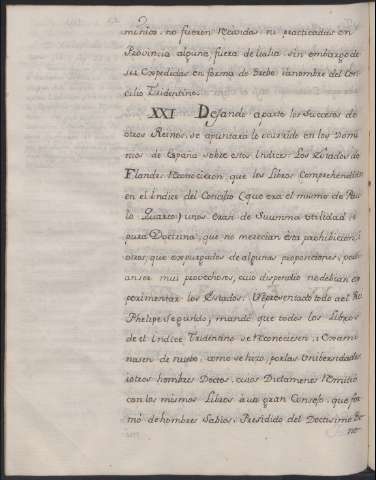 minios, no fueron recividas, ni practicadas en
Provincia alguna fuera de Italia, sin embargo de
ser Expedidas en forma de Brebe, ianombre del Con
cilio Tridentino.
XXI Dejando aparte los Sucesos de
otros Reinos, se apuntara lo ocurrido en los Domi
nios de España sobre estos Indices: Los Estados de
Flandes reconocieron, que los Libros Comprehendidos
en el Indice del Concilio (que era el mismo de Pau
lo Quarto) unos eran de Summa utilidad, i
pura Doctrina, que no merecian esta prohibicion, i
otros, que expurgados de algunas proposiciones, podi
an ser mui provechosos, cuio dispendio no debian ex
perimentar los Estados: Representado todo al Rei
Phelipe Segundo, mandó que todos los Libros
de el Indice Tridentino se reconociesen, i Exami
nasen de nuebo, como se hizo, por las Universidades
iotros hombres Doctos, cuios Dictamenes remitió
con los mismos Libros à un gran Consejo, que for
mó de hombres Sabios, Presidido del Doctisimo Be